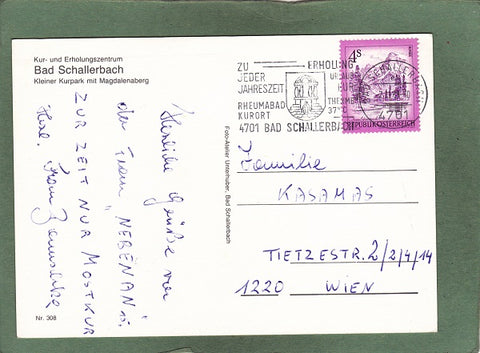 Kur- und Erholungszentrum
Bad Schallerbach
Kleiner Kurpark mit Magdalenaberg
Herzliche Grüße von
der Frau „NEBENAN“
ZUR ZEIT NUR MOSTKUR
Frau
Nr. 308
Foto-Atelier Unterhuber, Bad Schallerbach
ZU ERHOLUNG
JEDER URLAUB
JAHRESZEIT KUR
RHEUMABAD THERMBAD
KURORT 37°
4701 BAD SCHALLERBACH
4S
REPUBLIK ÖSTERREICH
BAD SCHALLERBACH
4701
Familie
KASAMAS
TIETZESTR. 2/2/4/14
1220 WIEN